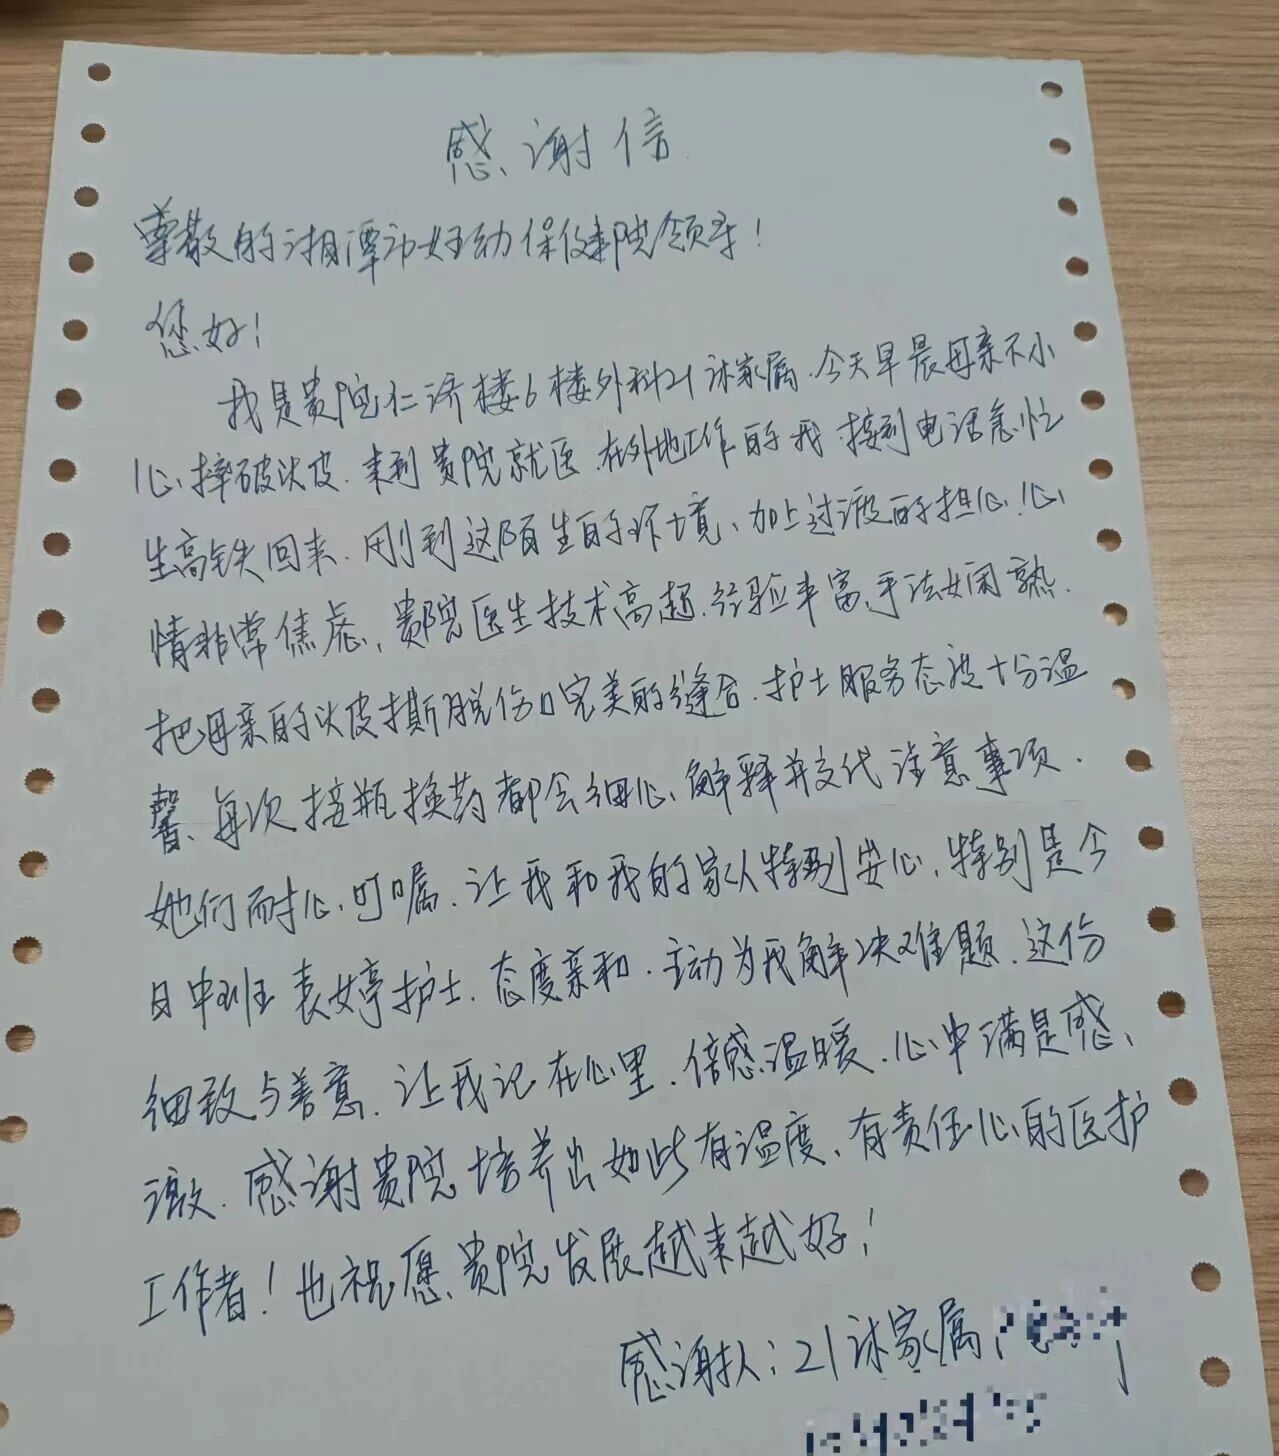 感谢信
尊敬的湘潭市妇幼保健院领导！
您好！
我是贵院仁济楼6楼外科21床家属.今天早晨母亲不小
心摔破头皮.来到贵院就医.在外地工作的我.接到电话急忙
坐高铁回来.刚到这陌生的环境、加上过渡的担心.心
情非常焦虑、贵院医生技术高超.经验丰富.手法娴熟.
把母亲的头皮撕脱伤口完美的缝合.护士服务态度十分温
馨、每次接瓶换药都会细心解释并交代注意事项.
她们耐心叮嘱.让我和我的家人特别安心.特别是今
日中班袁婷护士.态度亲和.主动为我解决难题.这份
细致与善意.让我记在心里.倍感温暖.心中满是感
激.感谢贵院培养出如此有温度、有责任心的医护
工作者！也祝愿贵院发展越来越好！
感谢人：21床家属